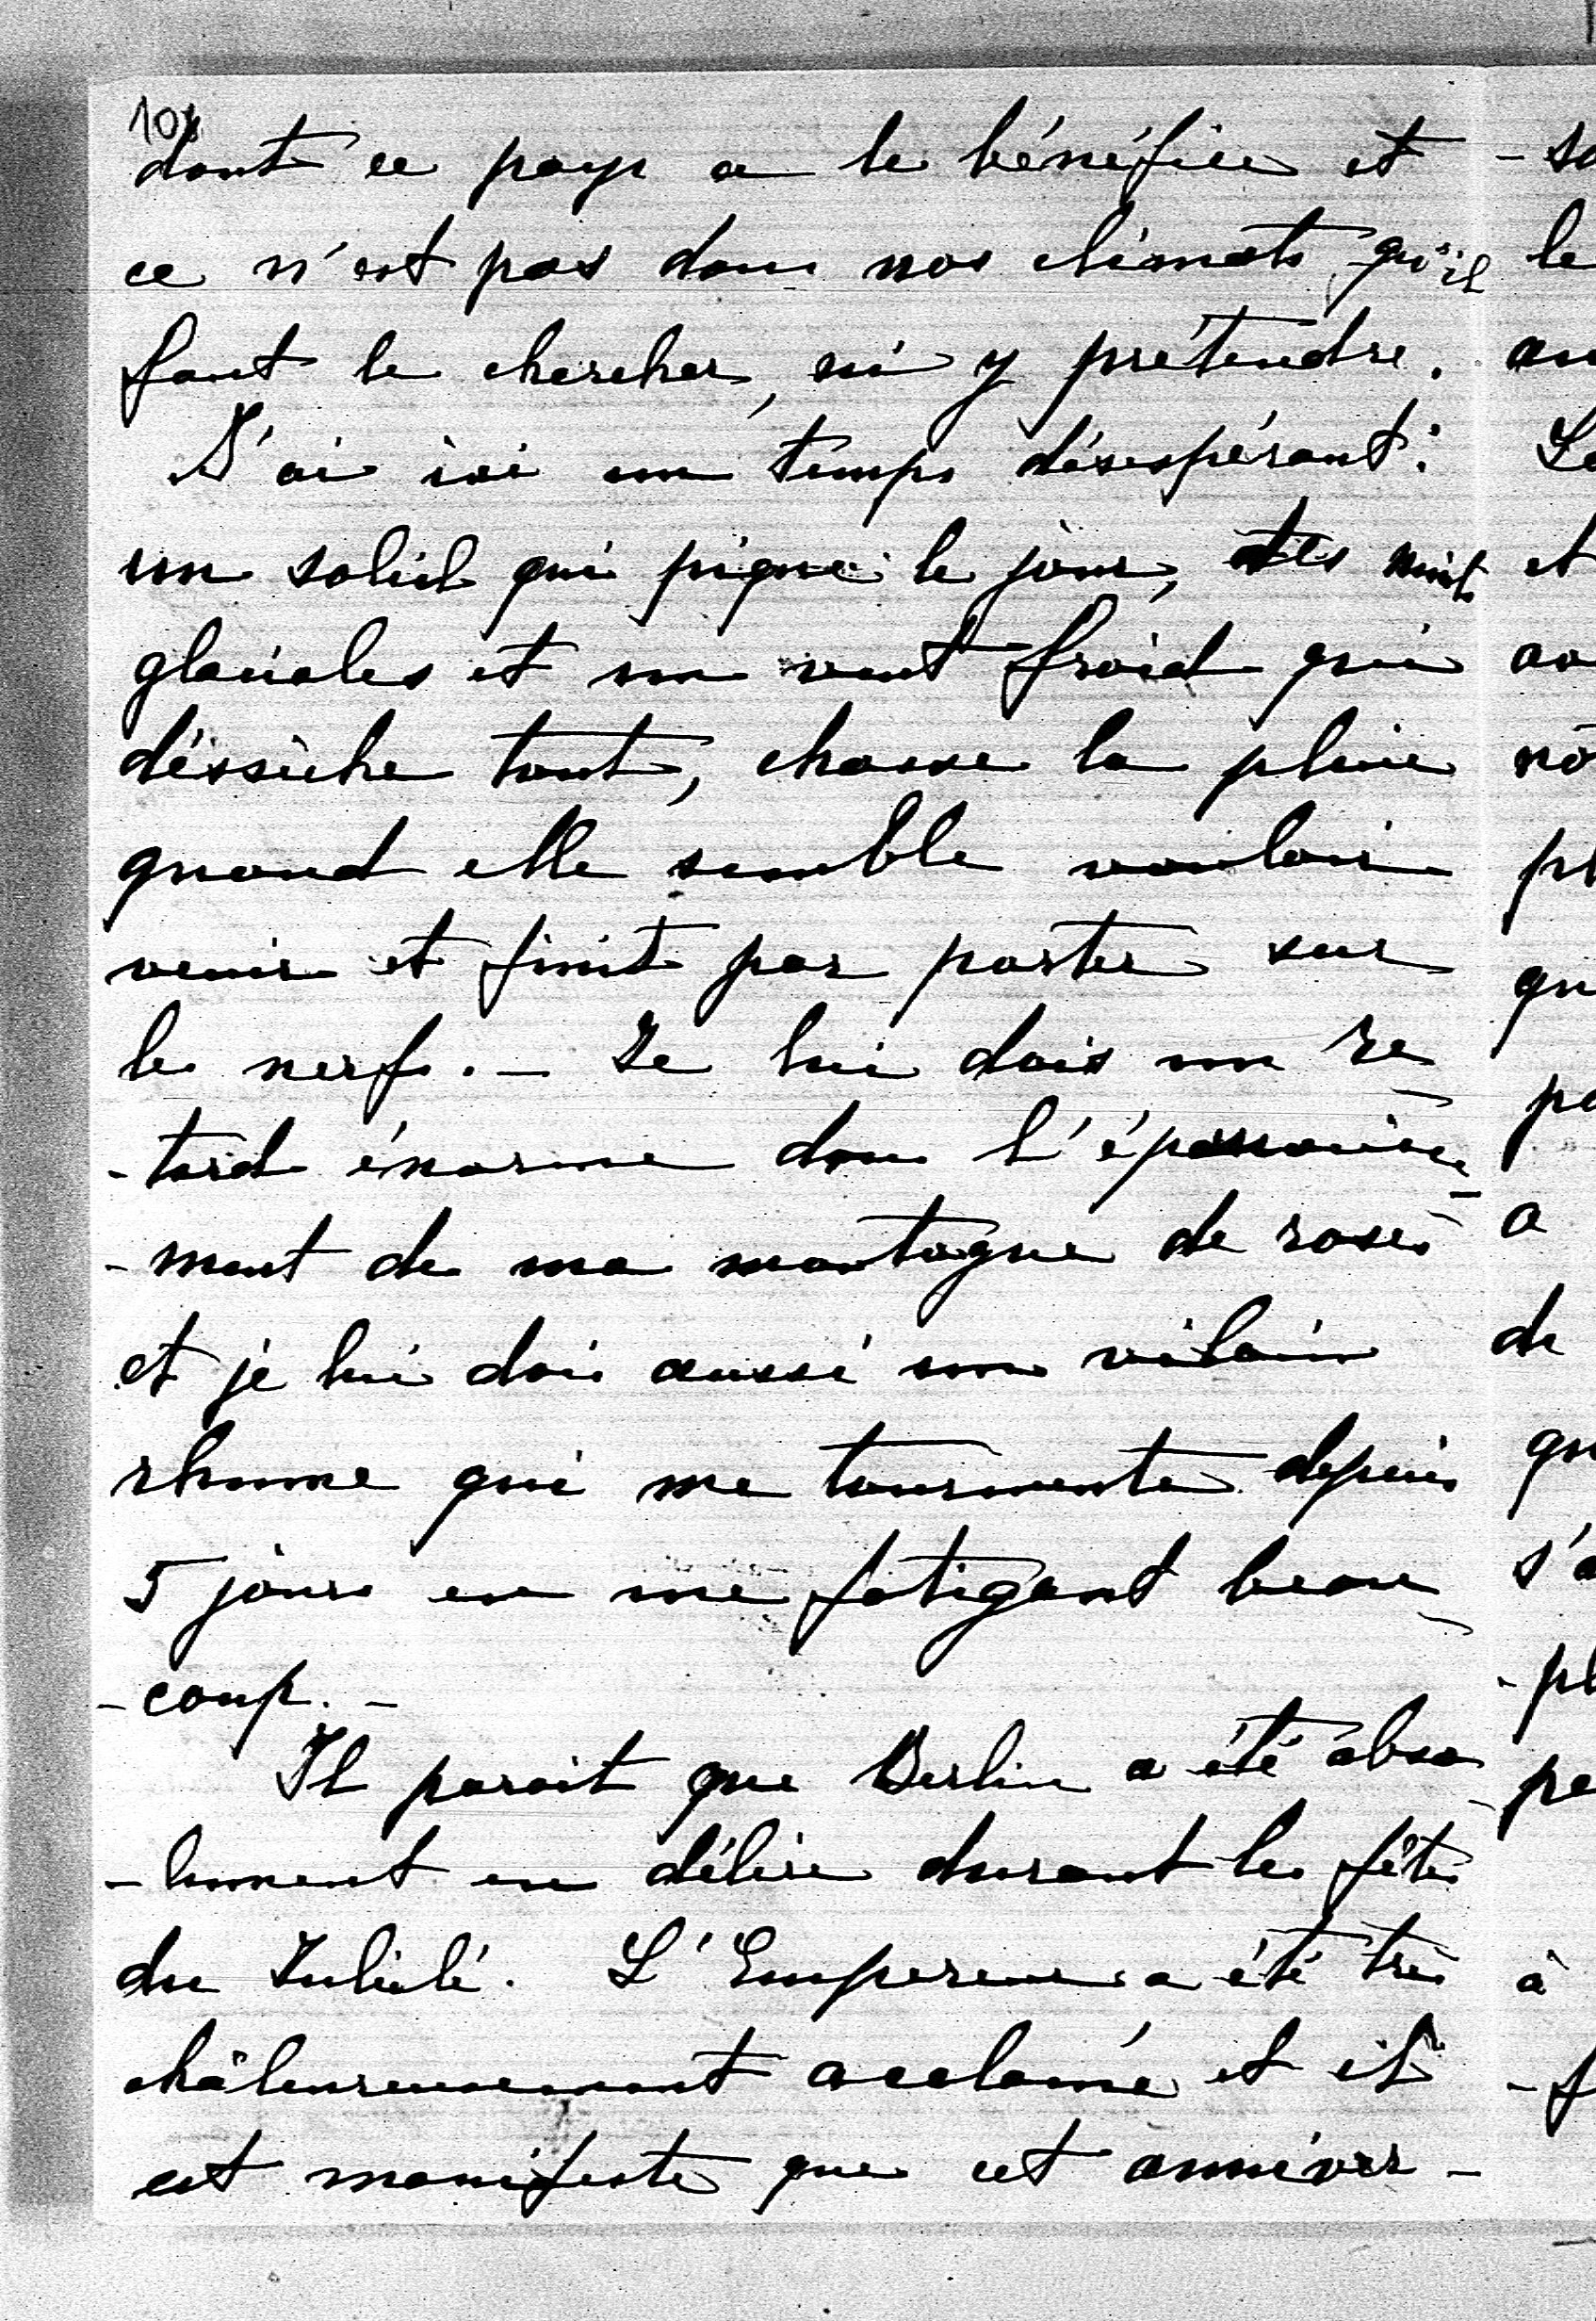 dont ce pays a le bénéfice et
ce n'est pas dans nos climats qu'il
faut le chercher, ni y prétendre.
J'ai ici un temps désespérant:
un soleil qui pique le jour, des nuits
glaciales et un vent froid qui
déssèche tout, chasse la pluie
quand elle semble vouloir
venir et finit par porter sur
les nerfs. — Je lui dois un re
-tard énorme dans l'épanouisse-
-ment de ma montagne de roses
et je lui dois aussi un vilain
rhume qui me tourmente depuis
5 jours en me fatigant beau-
-coup. —
Il parait que Berlin a été abso-
-lument en délire durant les fêtes
du Jubilé. L'Empereur a été très
châleureusement acclamé et il
est manifeste que cet anniver-